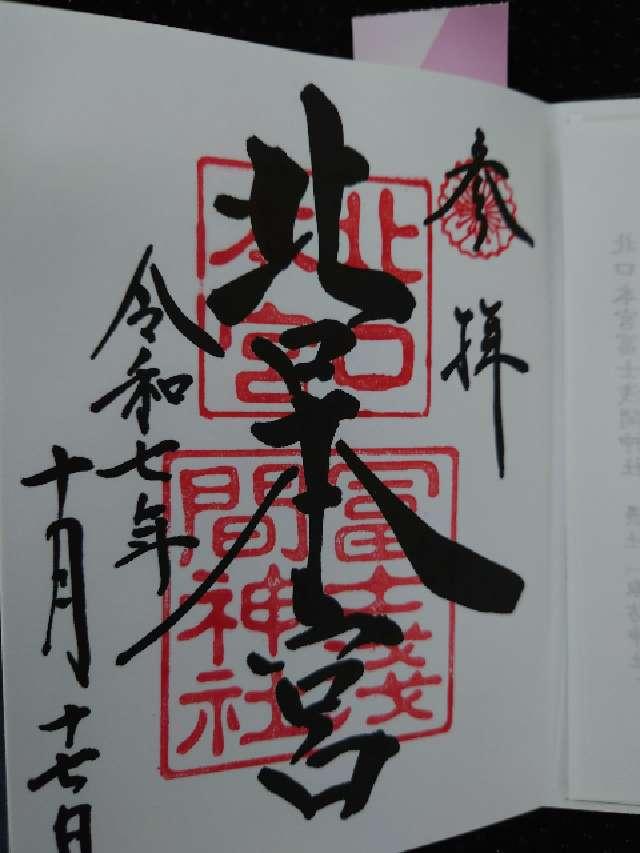 参拝
北口本宮
北口
本宮
冨士浅
間神社
令和七年
十月十七日
北口本宮冨士浅間神社